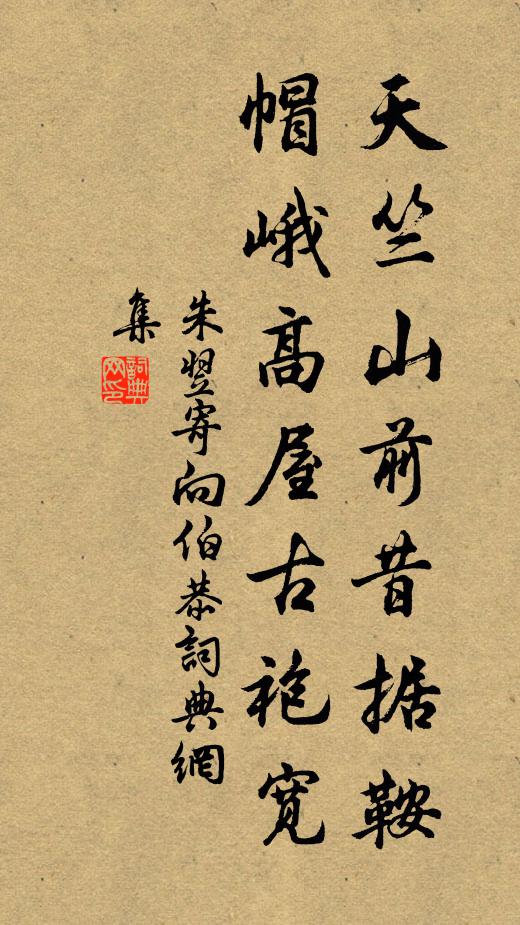 天竺山前昔据鞍
帽峨高屋古袍寬
朱翌寄向伯恭詞典網
集
詞典網印